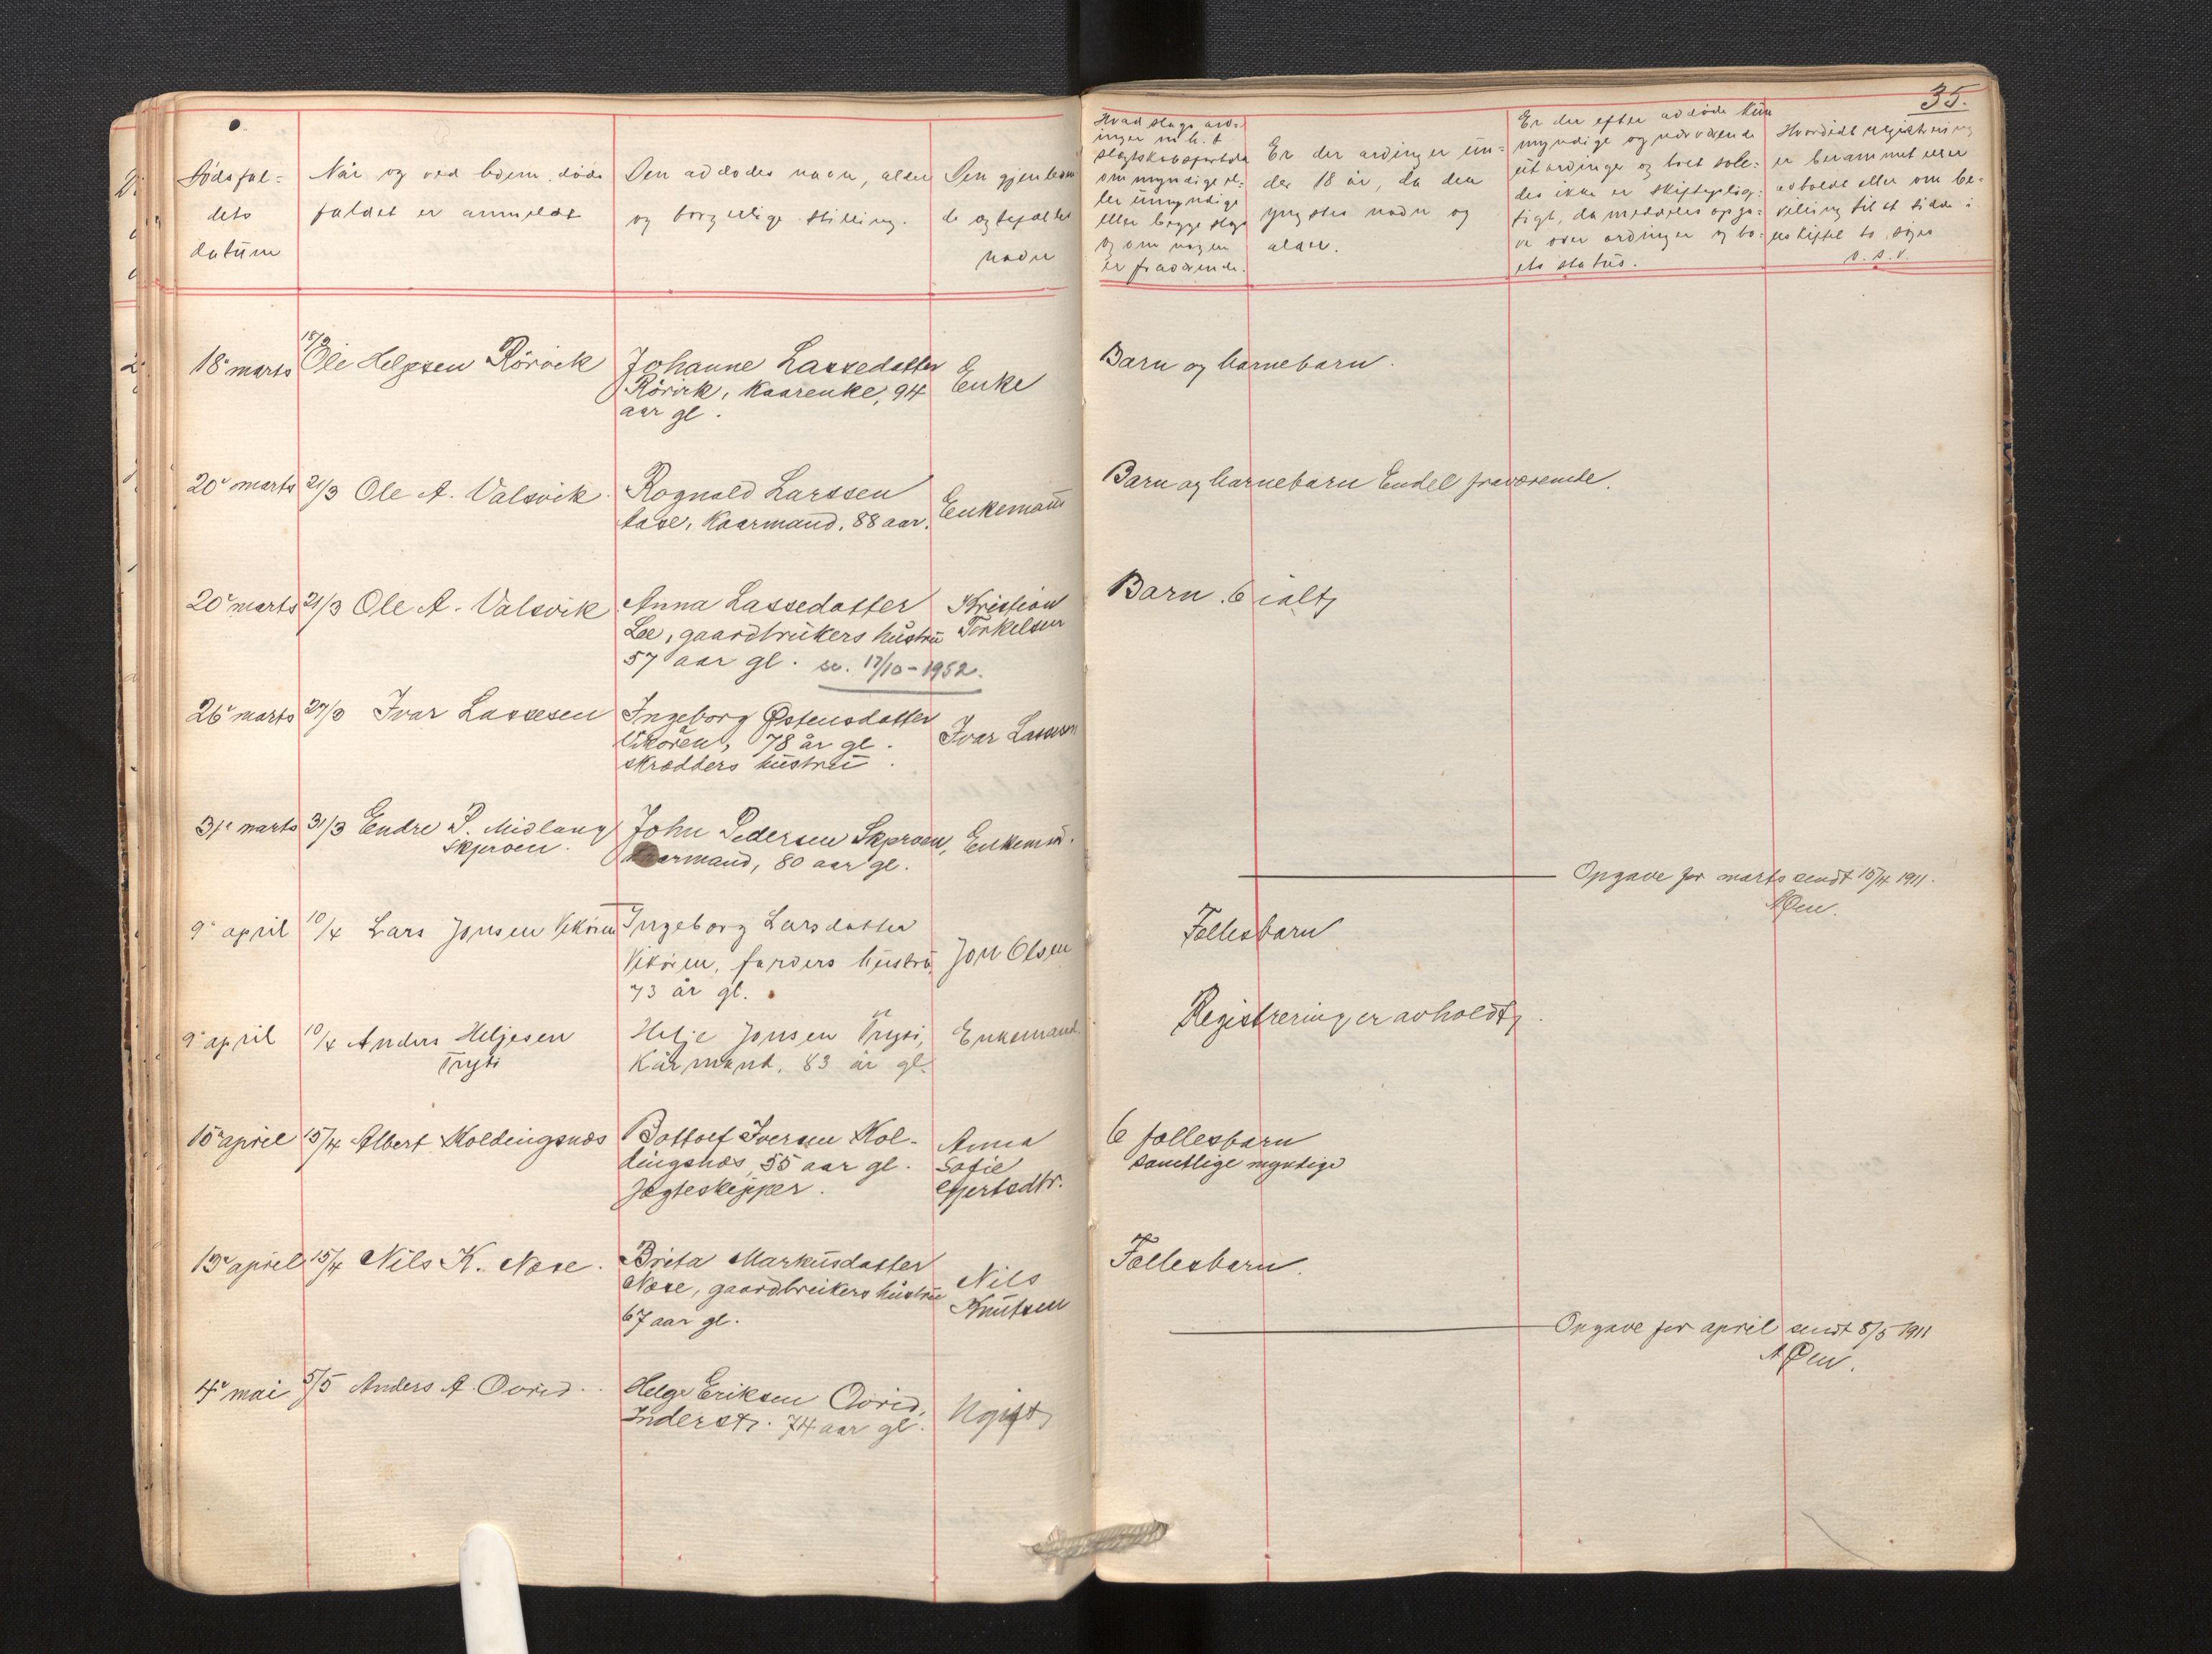 35.
Dødsfal=
dets
datum
Når og ved hvem døds
faldet er anmeldt
Den afdødes navn, alder
og borgerlige stilling.
Den gjenleven
de ægtefælles
navn
Hvad slags arv=
inger m. h. t
slægtskabsforhold
om myndige el=
ler umyndige
eller begge slags
og om nogen
er fraværende.
Er der arvinger un=
der 18 år, da den
yngstes navn og
alder.
Er der efter afdøde kun
myndige og nærværende
arvinger og boet såle=
des ikke er skiftepligtigt,
da meddeles opga=
ve over arvinger og bo=
ets status.
Hvorvidt registrering
er berammet eller
afholdt eller om be=
o. s. v.
18 marts
18/3
Ole Helgesen Rørvik
Johanne Lassedatter
Rørvik, Kaarenke, 94
aar gl.
Enke
Barn og barnebarn.
20 marts
21/3 Ole A. Valsvik.
Rognald Larssen
Kaarmand, 88 aar.
Enkemand
Barn og barnebarn Endel fraværende.
20 marts
21/3 Ole A. Valsvik
Anna Lassedatter
Lee, gaardbrukers hustru
57 aar gl. 17/10-1952.
Kristian
Torkelsen
Barn. 6 ialt
26 marts
27/3 Ivar Lassesen
Ingeborg Østensdatter
Vikøren, 78 år gl.
skrædders hustru.
Ivar Lassesen
31 marts
31/3 Endre P. Midlang
Skjerven.
John Pedersen Skjerven,
Kaarmand, 80 aar gl.
Enkem.
Opgave for marts sendt 15/4 1911.
9 april
10/4 Lars Jonsen Vikøren
Ingeborg Larsdatter
Vikøren, farvers hustru,
73 år gl.
Jon Olsen
Fællesbarn
9 april
10/4 Anders Heljesen
Tryti
Helje Jonsen Tryti,
Kårmand, 83 år gl.
Enkemand
Registrering er avholdt.
15 april
15/4 Albert Koldingsnæs
Bottolf Iversen Kol-
dingsnæs, 55 aar gl.
Jægteskipper.
Anna
Sofie
Gjertsdtr.
6 fællesbarn
samtlige myndige
13 april
15/4 Nils K. Nese.
Brita Markusdatter
Nese, gaardbrukers hustru
67 aar gl.
Nils
Knutsen
Fællesbarn.
Opgave for april sendt 8/5 1911
4 mai
5/5 Anders A. Ovrid.
Helge Eriksen Ovrid,
Inderst. 74 aar gl.
Ugift